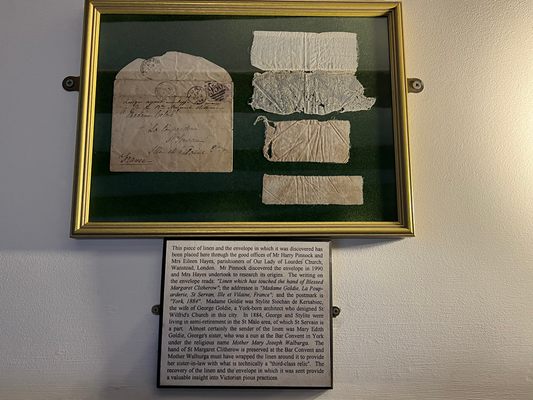 France
This piece of linen and the envelope in which it was discovered has
been placed here through the good offices of Mr Harry Pinnock and
Mrs Eileen Hayes, parishioners of Our Lady of Lourdes Church,
Wanstead, London. Mr Pinnock discovered the envelope in 1990
and Mrs Hayes undertook to research its origins. The writing on
the envelope reads: "Linen which has touched the hand of Blessed
Margaret Clitherow"; the addressee is "Madame Goldie, La Poup-
arderie, St Servan, Ille et Vilaine, France"; and the postmark is
"York, 1884". Madame Goldie was Stylite Stoehan de Kersabiec,
the wife of George Goldie, a York-born architect who designed St
Wilfrid's Church in this city. In 1884, George and Stylite were
living in semi-retirement in the St Malo area, of which St Servan is
a part. Almost certainly the sender of the linen was Mary Edith
Goldie, George's sister, who was a nun at the Bar Convent in York
under the religious name Mother Mary Joseph Walburga. The
hand of St Margaret Clitherow is preserved at the Bar Convent and
Mother Walburga must have wrapped the linen around it to provide
her sister-in-law with what is technically a "third-class relic". The
recovery of the linen and the envelope in which it was sent provide
a valuable insight into Victorian pious practices.